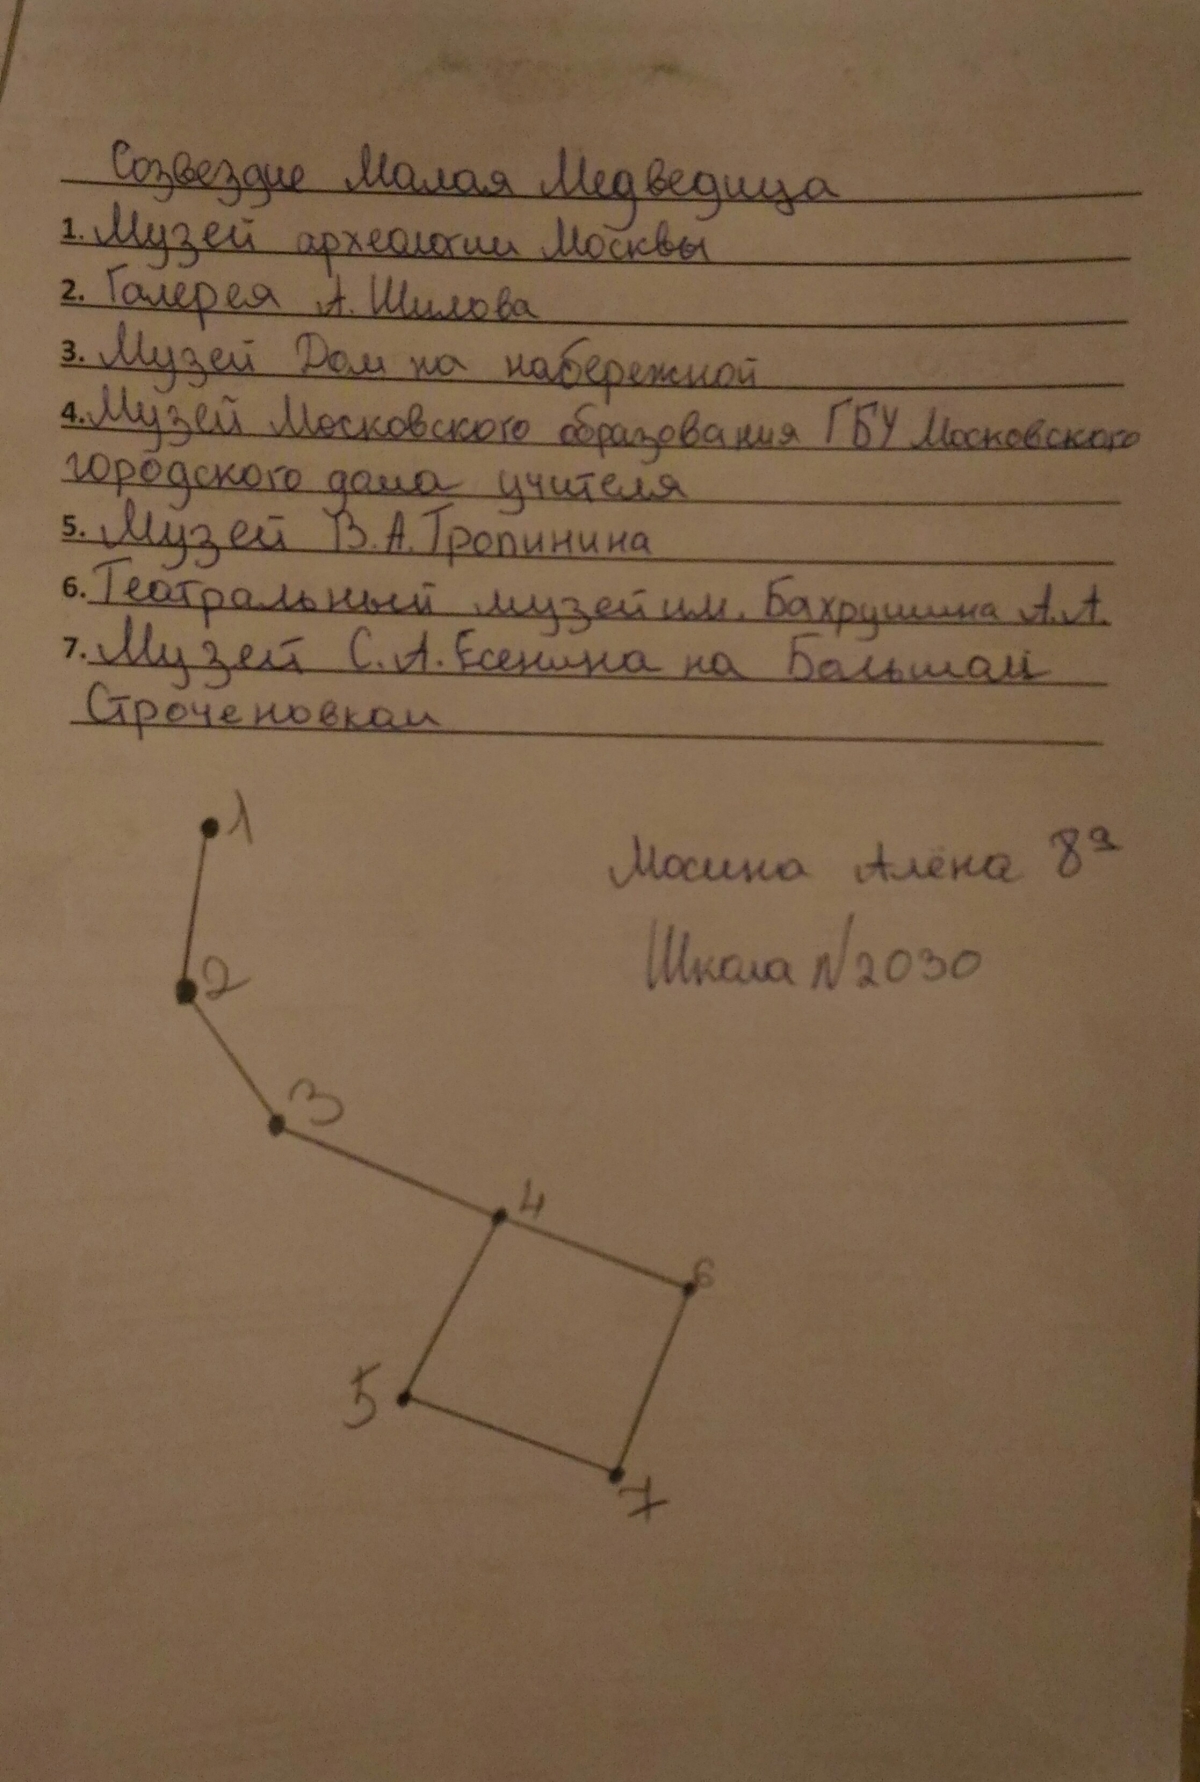 Созвездие Малая Медведица
1. Музей археологии Москвы
2. Галерея А. Шилова
3. Музей Дом на набережной
4. Музей Московского образования ГБУ Московского
городского дома учителя
5. Музей В.А. Тропинина
6. Театральный музей им. Бахрушина А.А.
7. Музей С.А. Есенина на Большом
Строченовском
1
Мосина Алёна 8а
2
Школа №2030
3
4
6
5
7